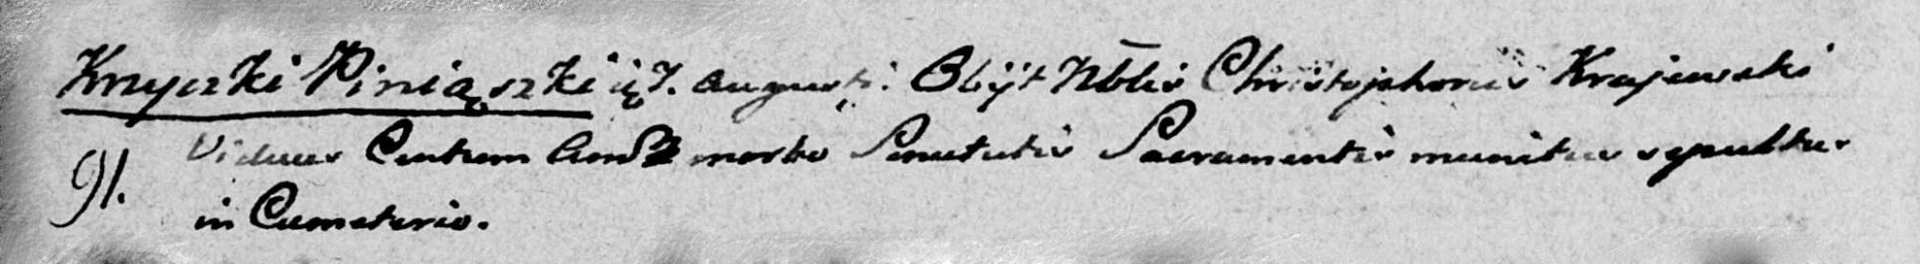 Knyszki Piniąszki 17. Augusti. Obijt Nōblis Christophorus Krajewski
91. Viduus Centum Annor morbo Senectutis Sacramentis munitus sepultus
in Cœmeterio.